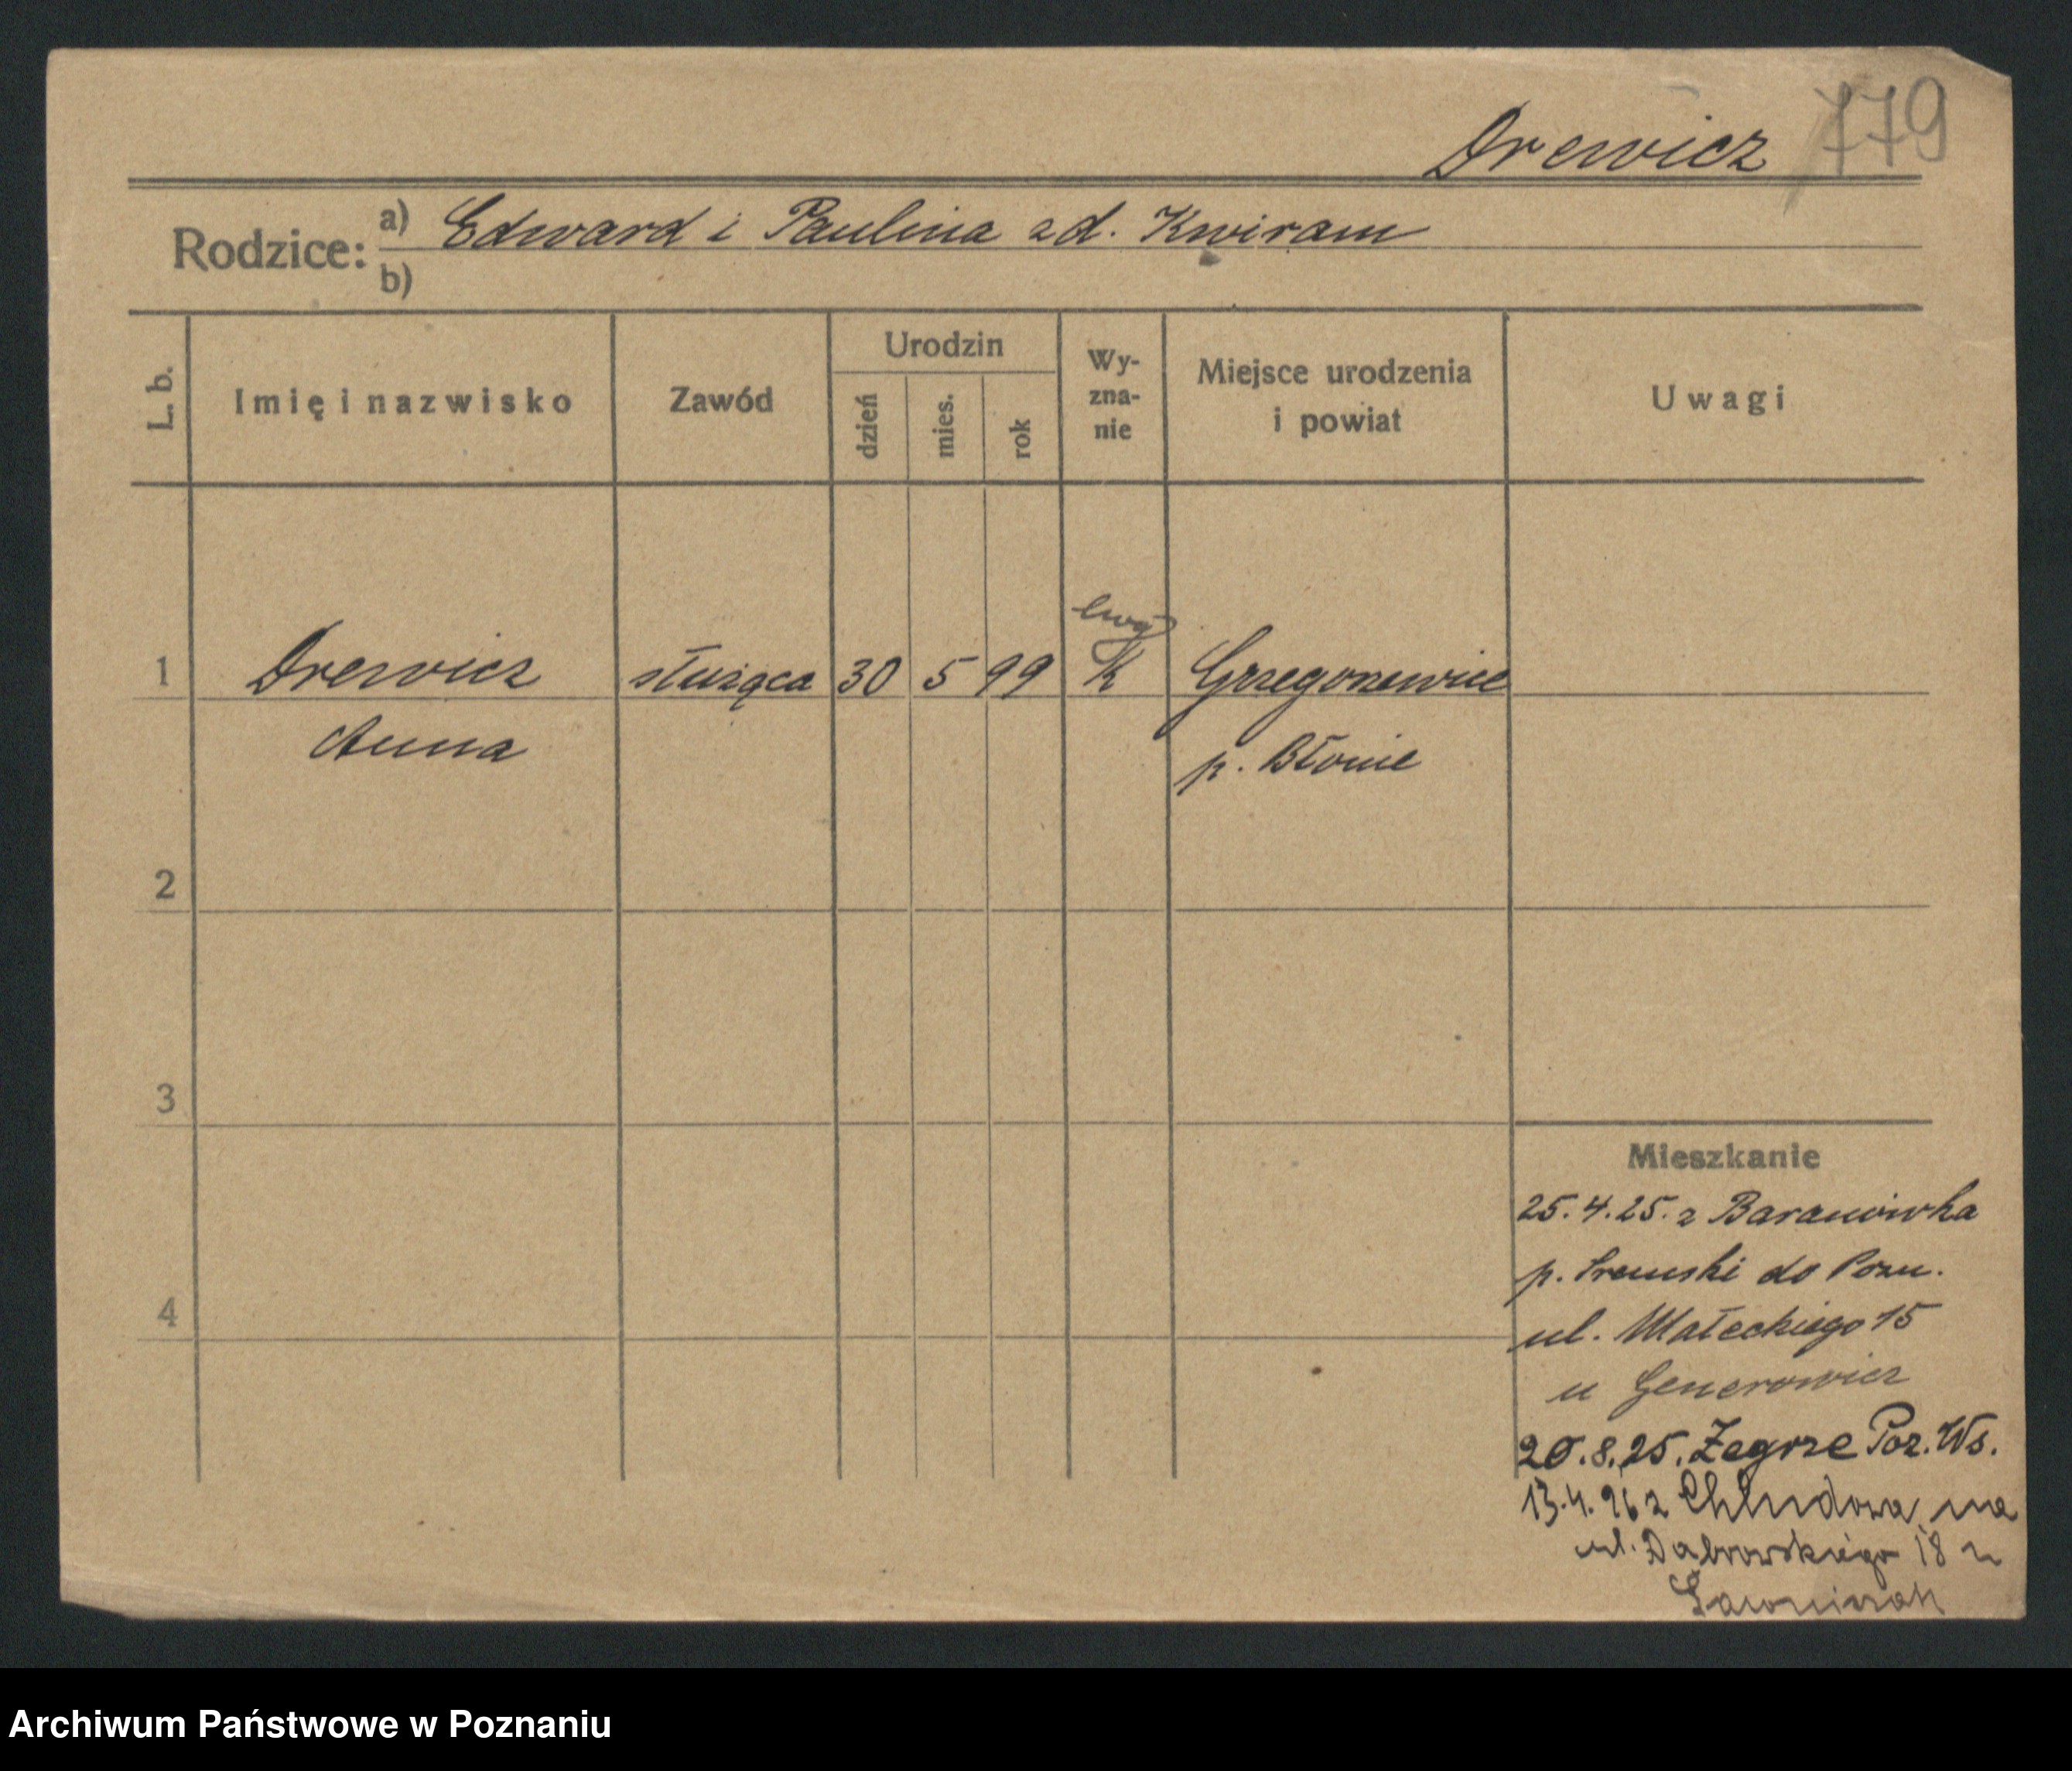 Drewicz 779
Rodzice: a) Edward i Paulina zd. Kwiram
b)
L. b.
Imię i nazwisko
Zawód
Urodzin
dzień
mies.
rok
Wy-
zna-
nie
Miejsce urodzenia
i powiat
Uwagi
ewg
1 Drewicz służąca 30 5 99 k Grzegorzewice
Anna p. Błonie
2
3
4
Mieszkanie
25.4.25. z Baranówka
p. Śremski do Pozn.
ul. Małeckiego 15
u Generowicz
20.8.25. Żegrze Poz. Ws.
13.4.26 z Chludowa na
ul. Dąbrowskiego 18 u
Archiwum Państwowe w Poznaniu